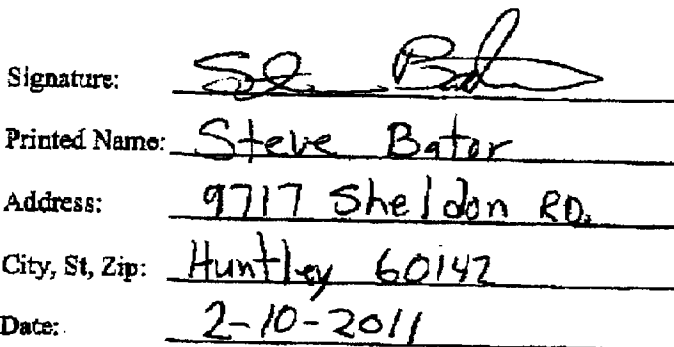 Signature: Steve Bator
Printed Name: Steve Bator
Address: 9717 Sheldon RD.
City, St, Zip: Huntley 60142
Date: 2-10-2011